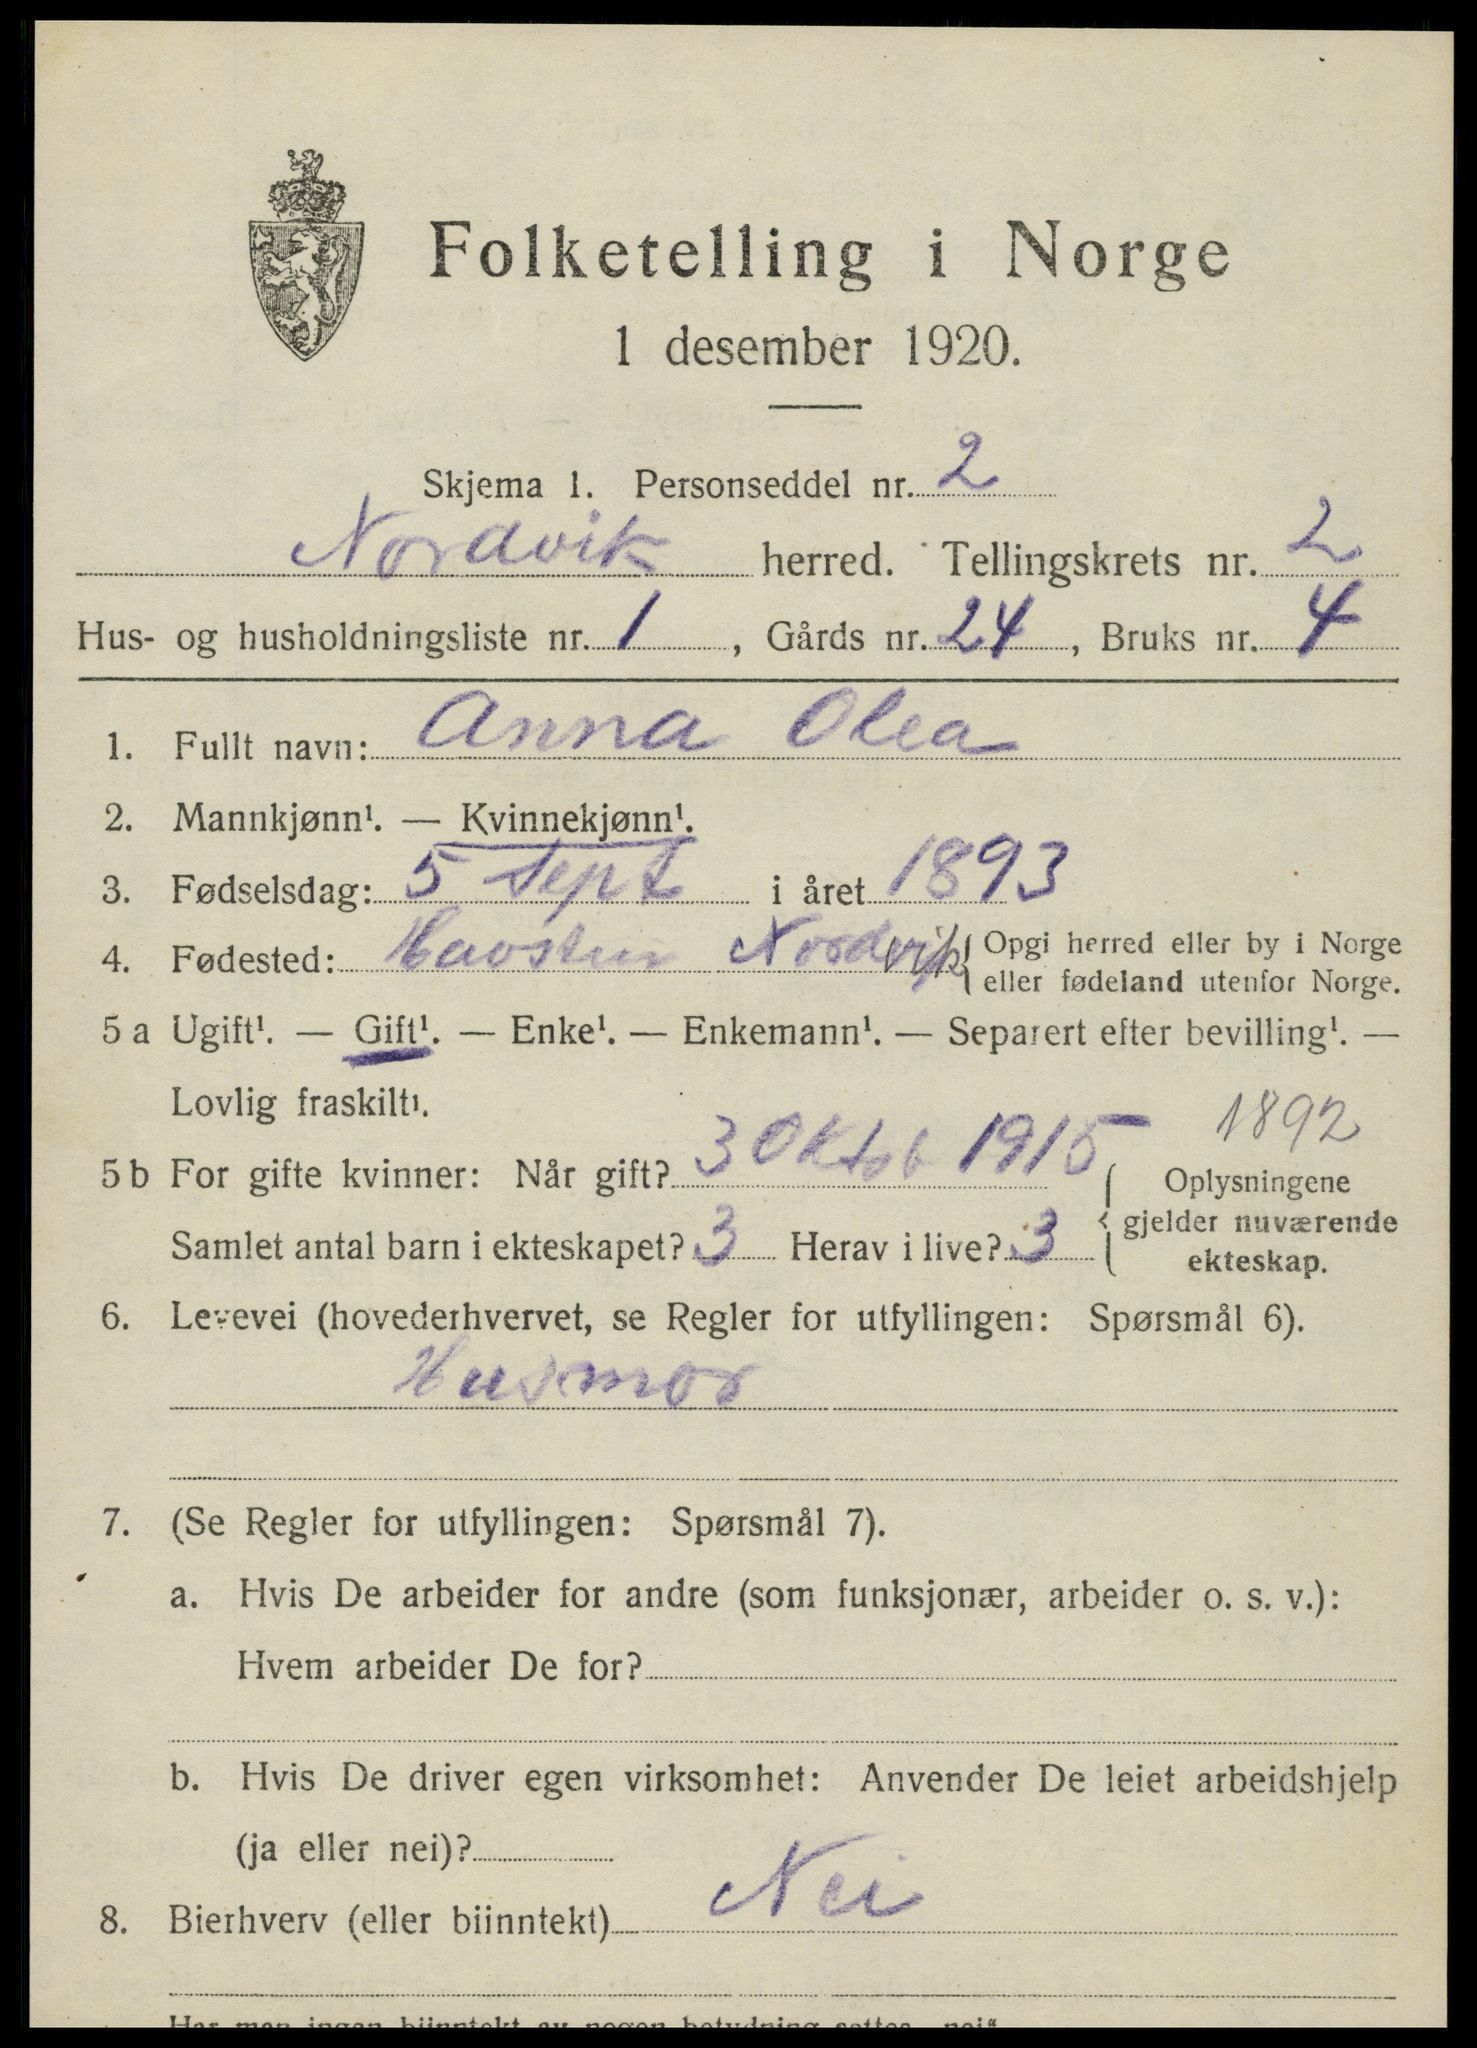 Folketelling i Norge
1 desember 1920.
Skjema 1. Personseddel nr. 2
Nordvik herred. Tellingskrets nr. 2
Hus- og husholdningsliste nr. 1, Gårds nr. 24, Bruks nr. 4
1. Fullt navn: Anna Olea
2. Mannkjønn¹. — Kvinnekjønn¹.
3. Fødselsdag: 5 Sept i året 1893
4. Fødested: Nordvik { Opgi herred eller by i Norge
eller fødeland utenfor Norge.
5 a Ugift¹. — Gift¹. — Enke¹. — Enkemann¹. — Separert efter bevilling¹. —
Lovlig fraskilt¹.
1892
5 b For gifte kvinner: Når gift? 3 Oktob 1915
Samlet antal barn i ekteskapet? 3 Herav i live? 3
{ Oplysningene
gjelder nuværende
ekteskap.
6. Levevei (hovederhvervet, se Regler for utfyllingen: Spørsmål 6).
Husmor
7. (Se Regler for utfyllingen: Spørsmål 7).
a. Hvis De arbeider for andre (som funksjonær, arbeider o. s. v.):
Hvem arbeider De for?
b. Hvis De driver egen virksomhet: Anvender De leiet arbeidshjelp
(ja eller nei)?
8. Bierhverv (eller biinntekt) Nei
Har man ingen biinntekt av nogen betydning settes „nei“